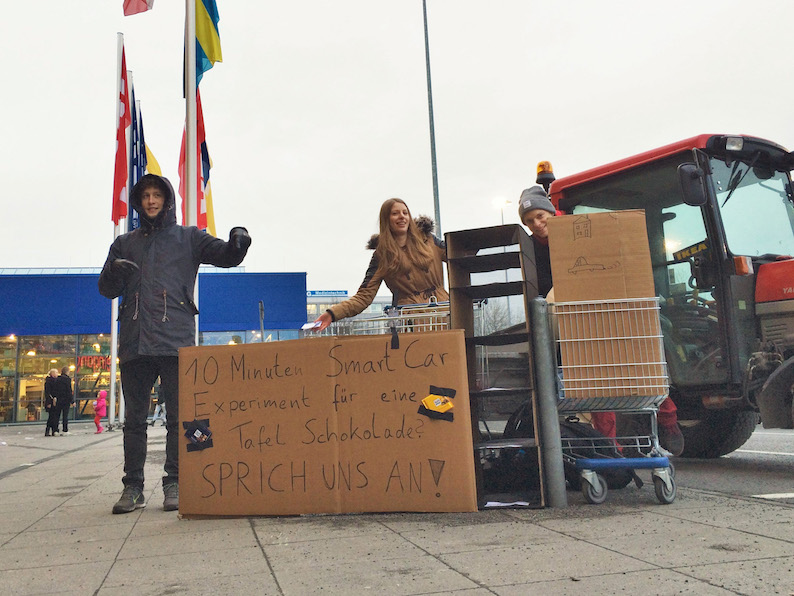 10 Minuten Smart Car
Experiment für eine
Tafel Schokolade?
SPRICH UNS AN!
IKEA